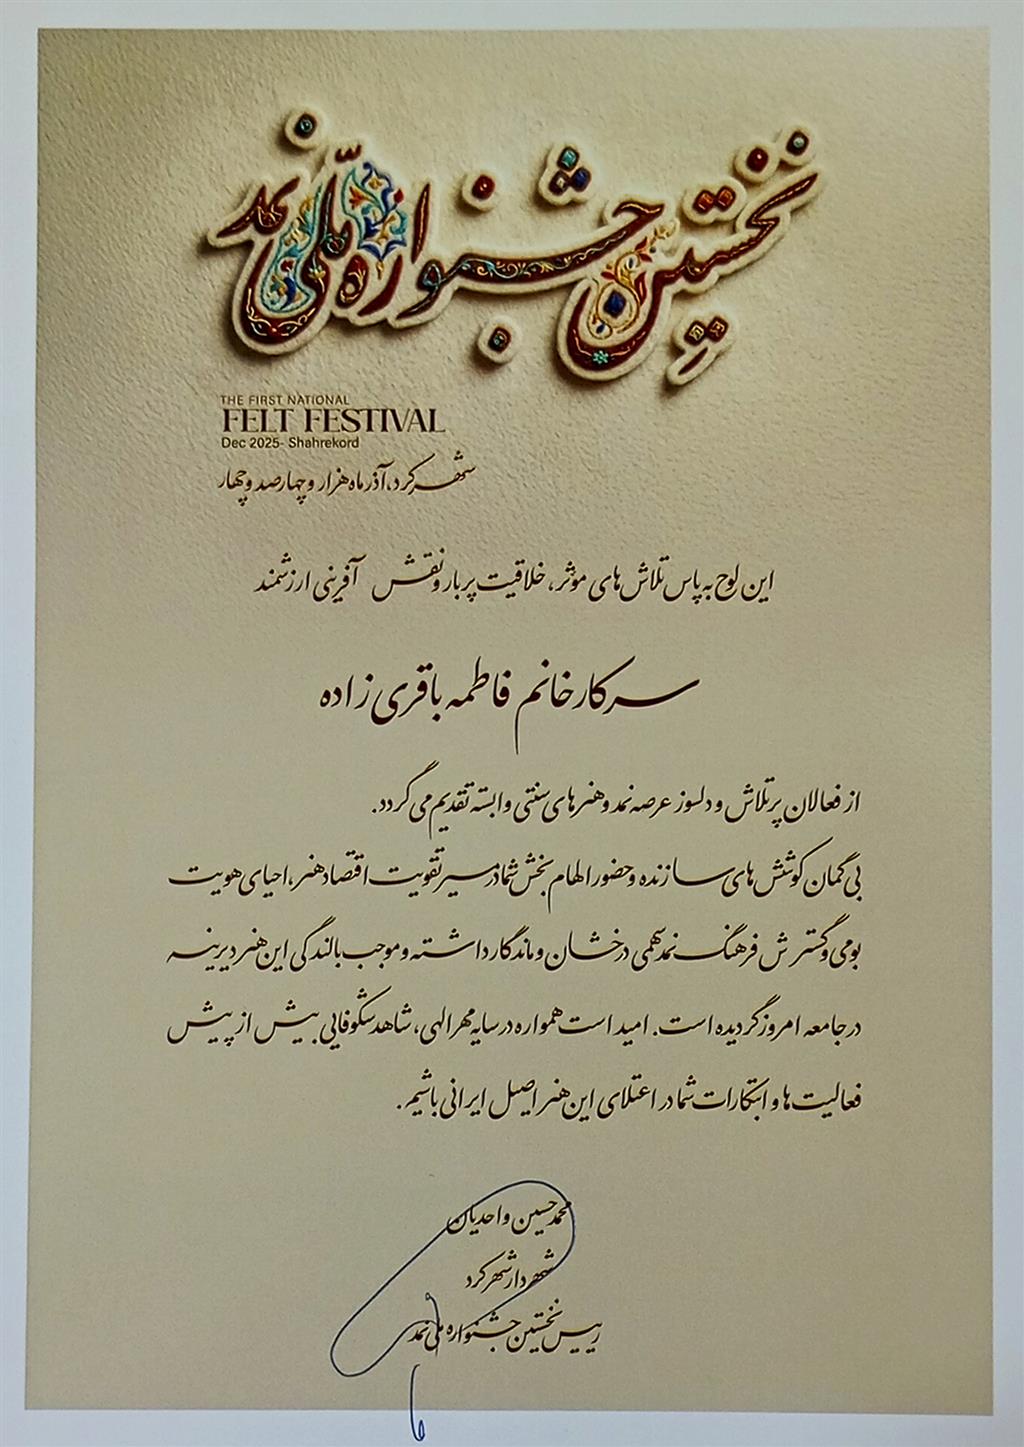 نخستین جشنواره ملّی نمد
THE FIRST NATIONAL
FELT FESTIVAL
Dec 2025- Shahrekord
شهرکرد، آذر ماه هزار و چهارصد و چهار
این لوح به پاس تلاش های موثر، خلاقیت پربار و نقش آفرینی ارزشمند
سرکار خانم فاطمه باقری زاده
از فعالان پرتلاش و دلسوز عرصه نمد و هنرهای سنتی وابسته تقدیم می گردد.
بی گمان کوشش های سازنده و حضور الهام بخش شما در مسیر تقویت اقتصاد هنر، احیای هویت
بومی و گسترش فرهنگ نمد سهمی درخشان و ماندگار داشته و موجب بالندگی این هنر دیرینه
در جامعه امروز گردیده است. امید است همواره در سایه مهر الهی، شاهد شکوفایی بیش از پیش
فعالیت ها و ابتکارات شما در اعتلای این هنر اصیل ایرانی باشیم.
محمدحسین واحدیان
شهردار شهرکرد
رییس نخستین جشنواره ملی نمد